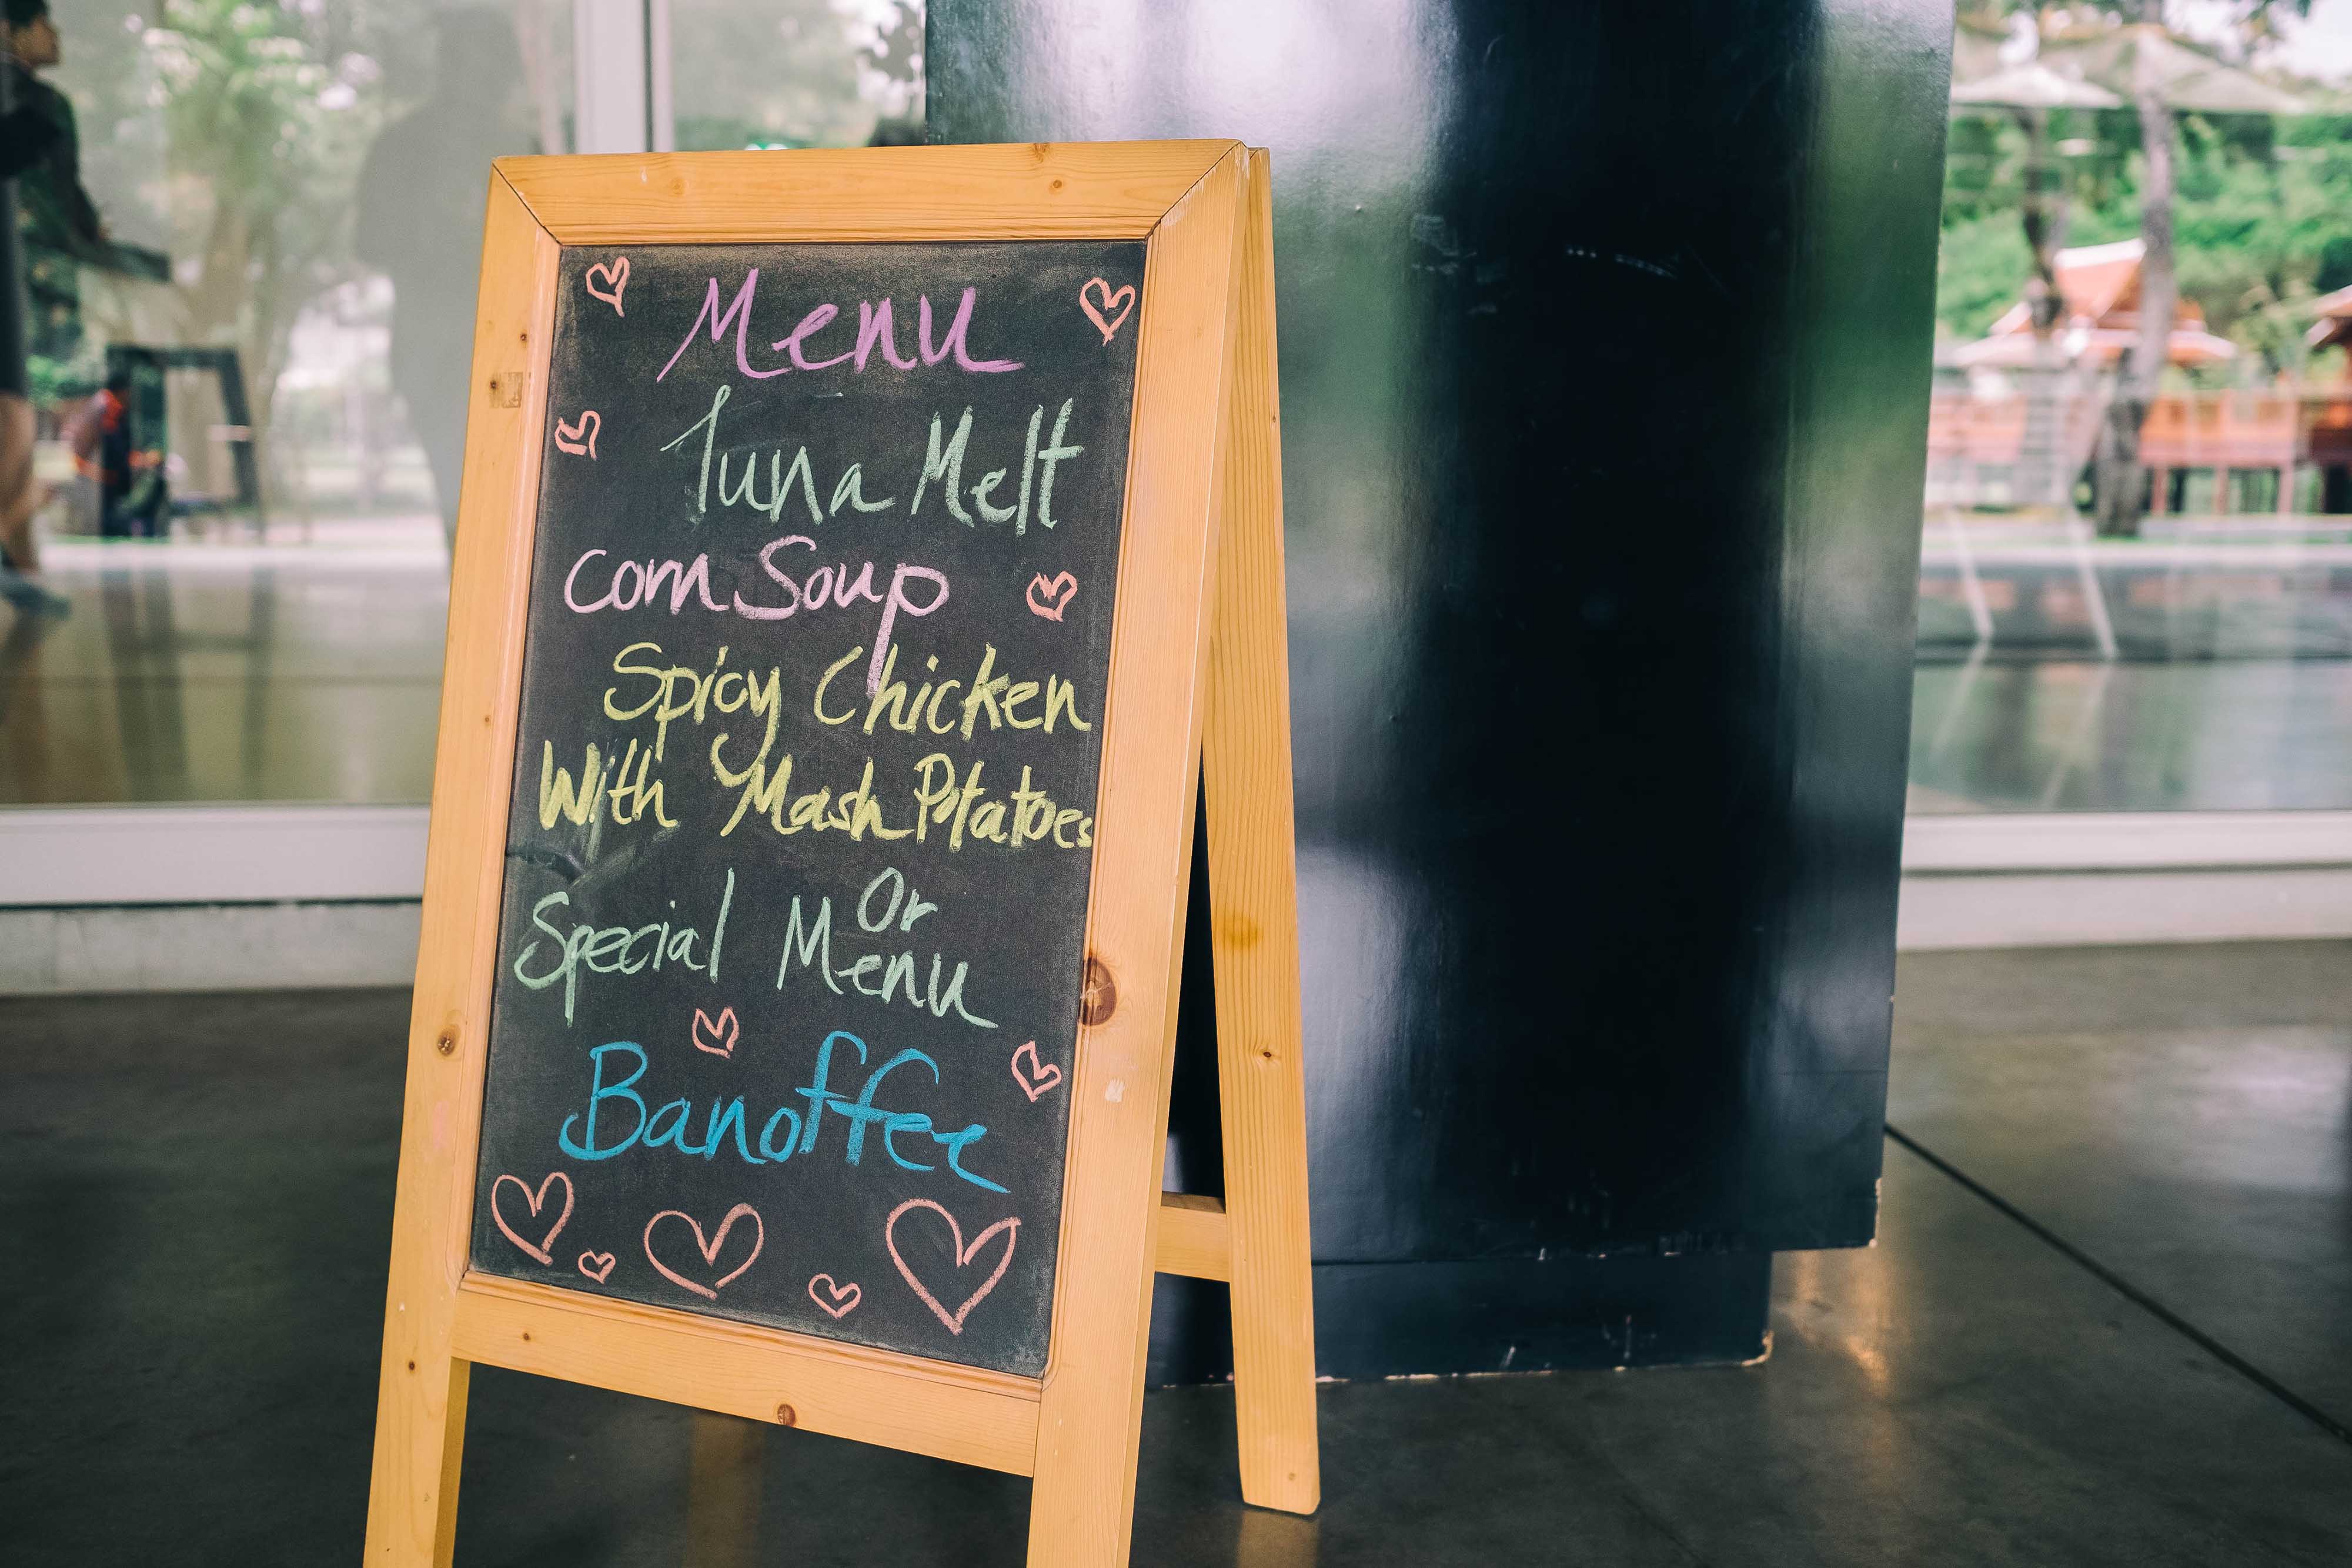 Menu
Tuna Melt
Corn Soup
Spicy Chicken
With Mash Potatoes
Or
Special Menu
Banoffee